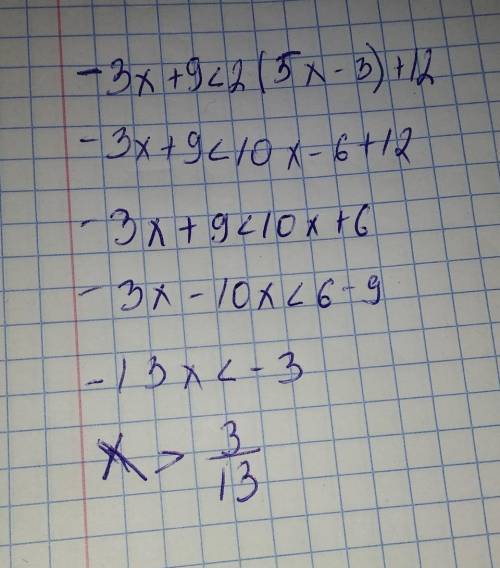 -3x+9<2(5x-3)+12
-3x+9<10x-6+12
-3x+9<10x+6
-3x-10x<6-9
-13x<-3
x > 3/13